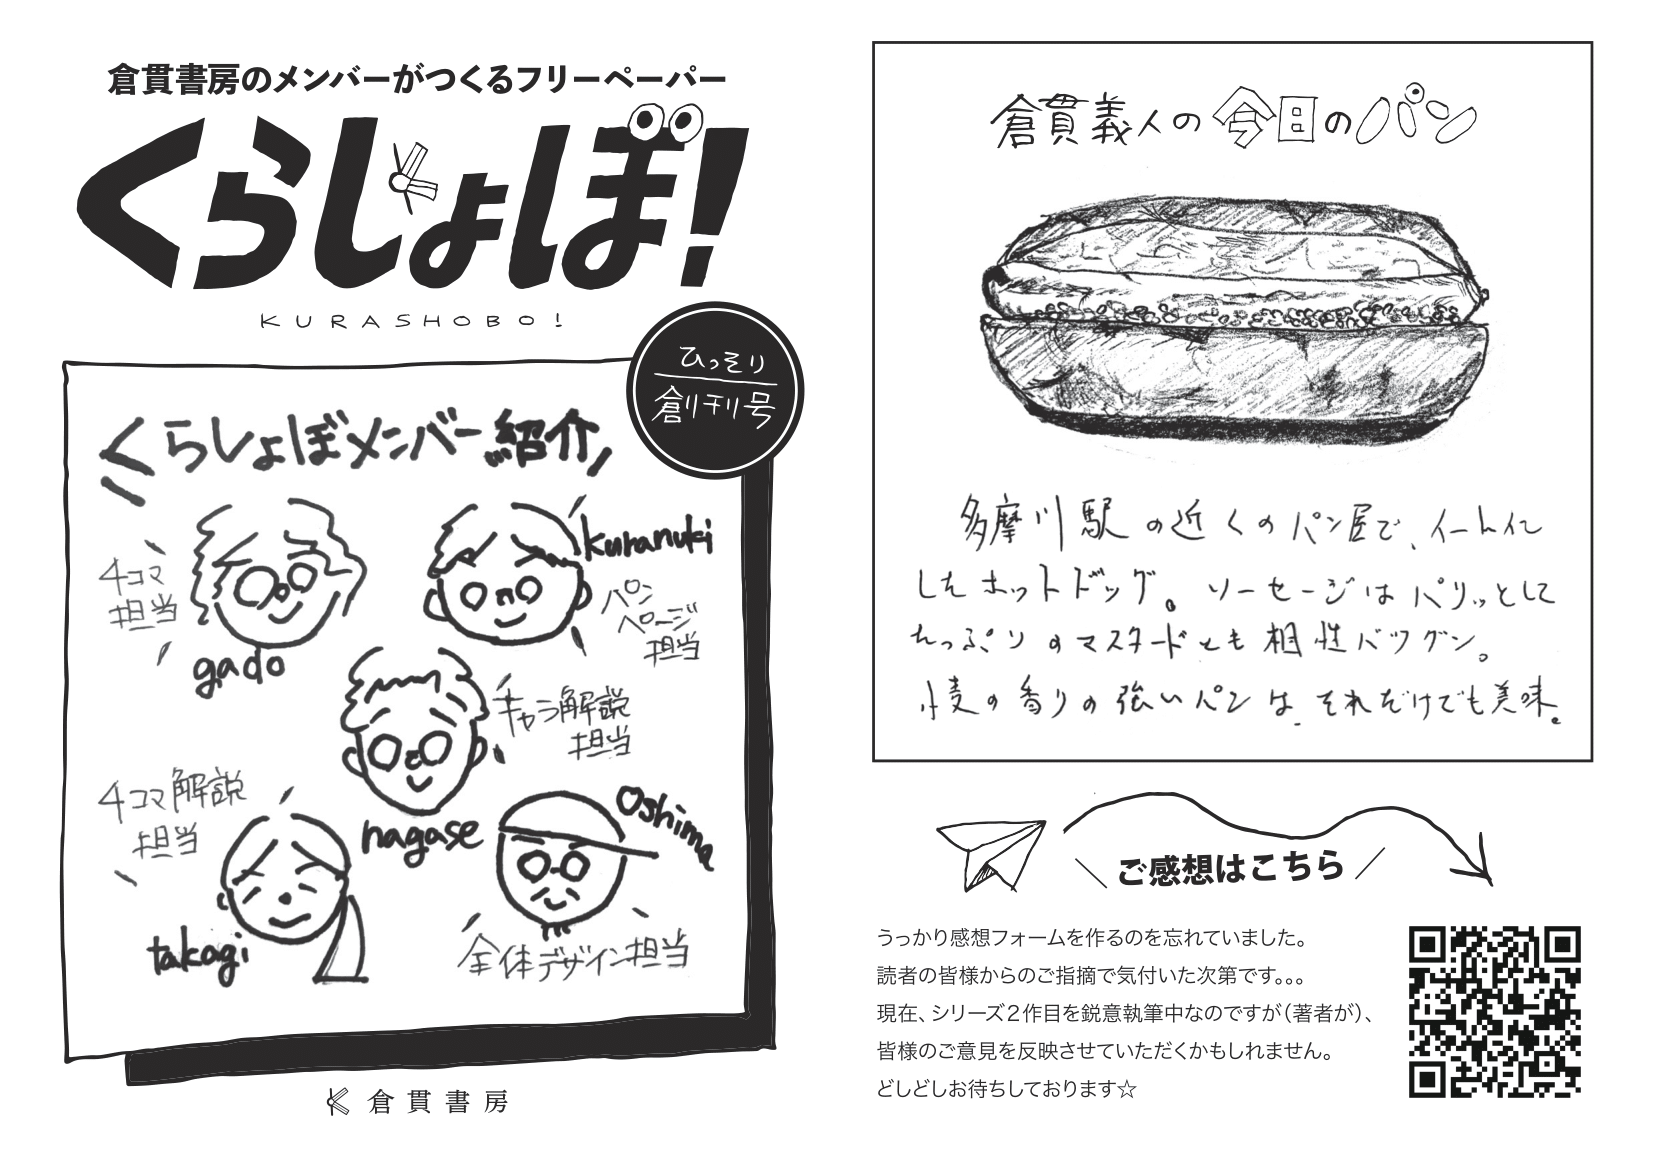 倉貫書房のメンバーがつくるフリーペーパー
くらしょぼ!
KURASHOBO!
ひっそり
創刊号
くらしょぼメンバー紹介
4コマ
担当
gado
kuranuki
パン
ページ
担当
キャラ解説
担当
nagase
4コマ解説
担当
takagi
Oshima
全体デザイン担当
倉貫書房
倉貫義人の今日のパン
多摩川駅の近くのパン屋で、イートイン
したホットドッグ。ソーセージはパリッとして
たっぷりのマスタードとも相性バツグン。
小麦の香りの強いパンは、それだけでも美味。
ご感想はこちら
うっかり感想フォームを作るのを忘れていました。
読者の皆様からのご指摘で気付いた次第です。。。
現在、シリーズ2作目を鋭意執筆中なのですが(著者が)、
皆様のご意見を反映させていただくかもしれません。
どしどしお待ちしております☆